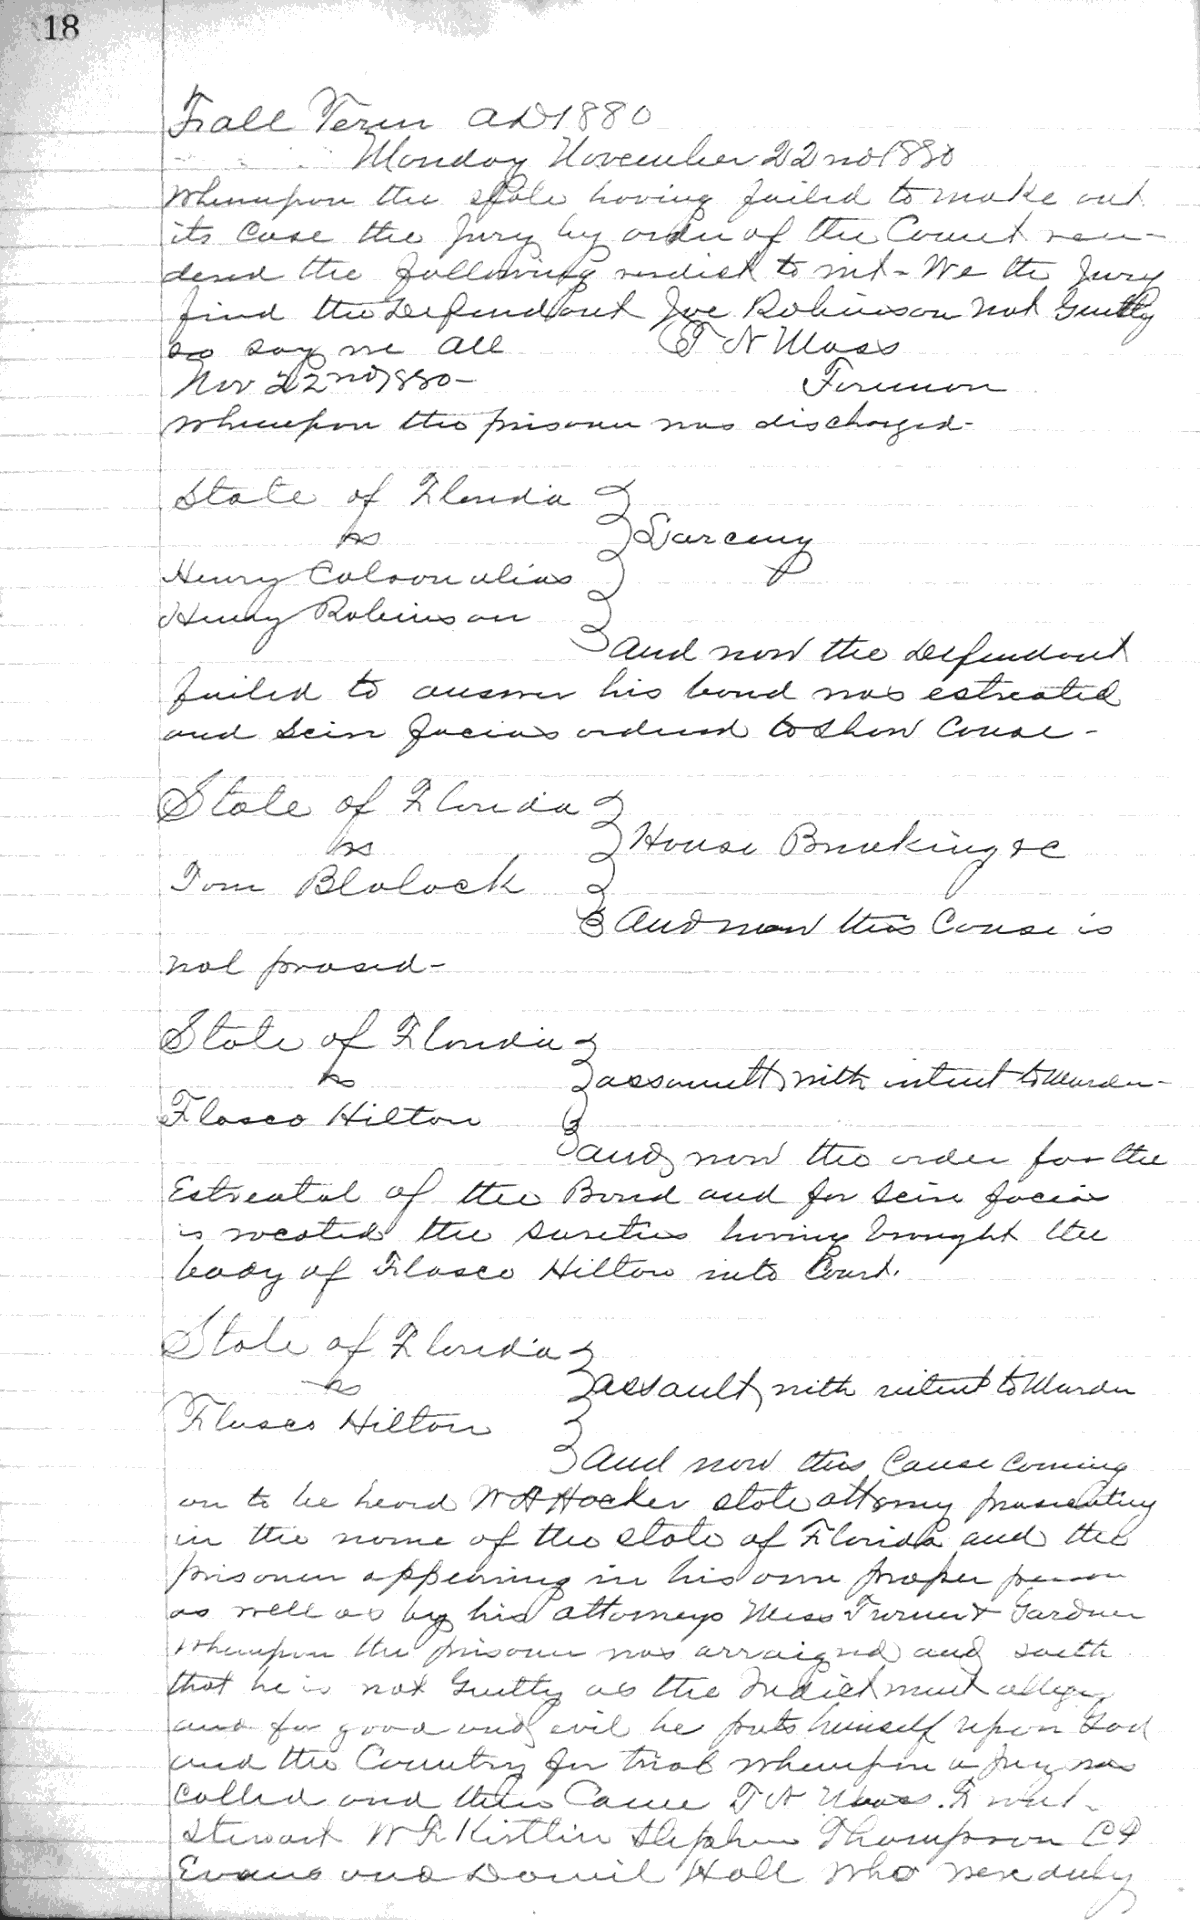 18
Fall Term AD 1880
Monday November 22nd 1880
Whereupon the State having failed to make out
its Case the Jury by order of the Court ren-
dered the following verdict to wit - We the Jury
find the Defendant Joe Robinson not Guilty
so say we all T N Moss
Nov 22nd 1880 - Foreman
Whereupon the prisoner was discharged -
State of Florida
vs Larceny
Henry Colson alias
Henry Robinson
And now the Defendant
failed to answer his bond was estreated
and Scire facias ordered to Show Cause -
State of Florida
vs House Breaking &c
Tom Blalock
And now this Cause is
nol prosed -
State of Florida
vs assault with intent to Murder -
Flasco Hilton
and now the order for the
Estreatal of the Bond and for Scire facias
is vacated the sureties having brought the
body of Flasco Hilton into Court.
State of Florida
vs assault with intent to Murder
Flasco Hilton
And now this Cause coming
on to be heard W A Hocker State attorney prosecuting
in the name of the State of Florida and the
prisoner appearing in his own proper person
as well as by his attorneys Mess Turner & Gardner
Whereupon the prisoner was arraigned and saith
that he is not Guilty as the Indictment alleges
and for good and evil he puts himself upon God
and the Country for trial whereupon a Jury was
called and there Came T N Moss.
Stewart W F Kistlin Stephen Thompson C P
Evans and Daniel Hall who were duly